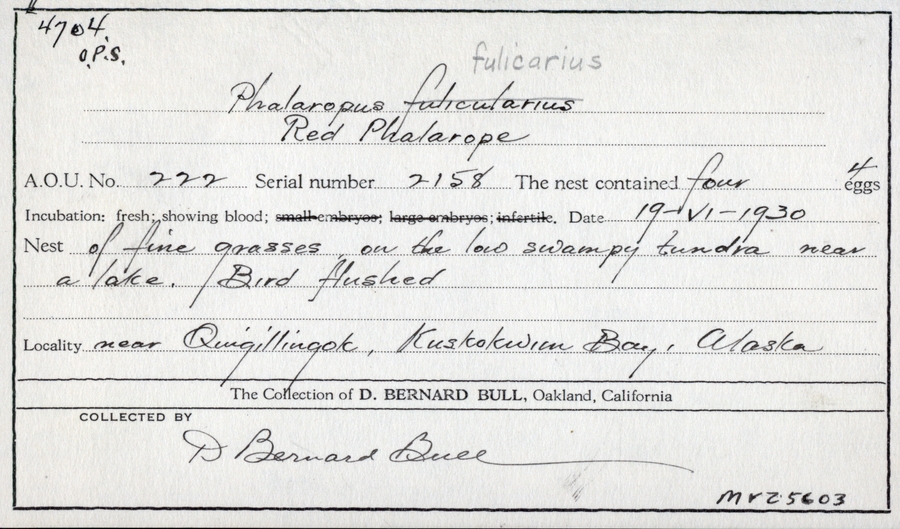 4704.
O.P.S.
fulicarius
Phalaropus fulicularius
Red Phalarope
A.O.U. No. 222 Serial number 2158 The nest contained four 4 eggs
Incubation: fresh; showing blood; small embryos; large embryos; infertile. Date 19-VI-1930
Nest of fine grasses on the low swampy tundra near
a lake. Bird flushed
Locality near Quigillingok, Kuskokwim Bay, Alaska
The Collection of D. BERNARD BULL, Oakland, California
COLLECTED BY
D Bernard Bull
MVZ 5603